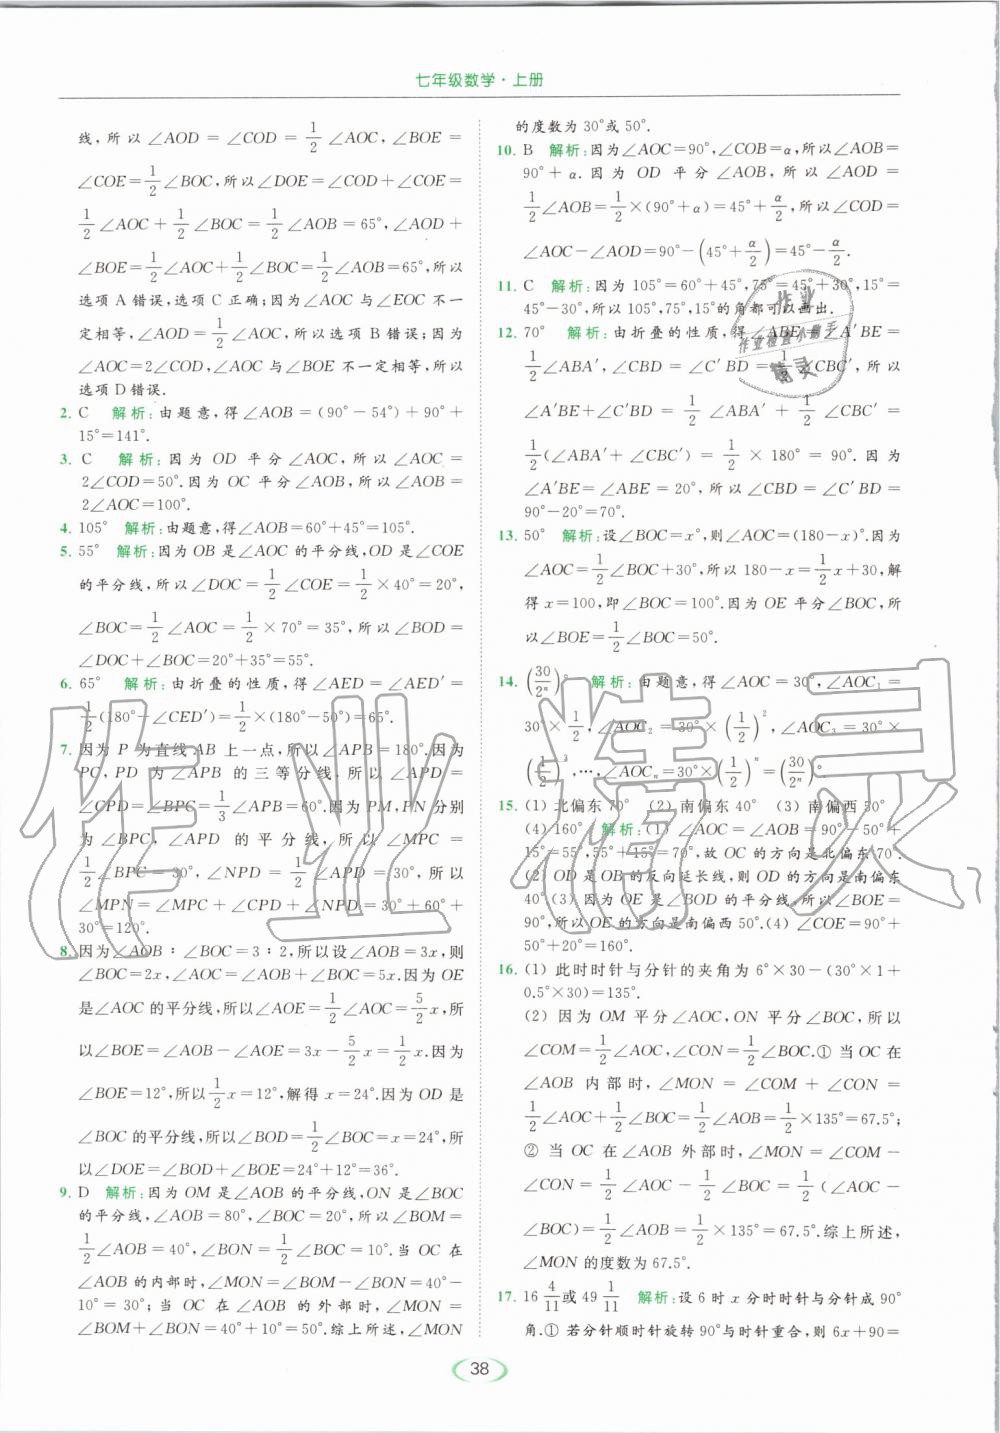 七年级数学·上册
线,所以∠AOD=∠COD=1/2∠AOC,∠BOE=
∠COE=1/2∠BOC,所以∠DOE=∠COD+∠COE=
1/2∠AOC+1/2∠BOC=1/2∠AOB=65°,∠AOD+
∠BOE=1/2∠AOC+1/2∠BOC=1/2∠AOB=65°,所以
选项A错误,选项C正确;因为∠AOC与∠EOC不一
定相等,∠AOD=1/2∠AOC,所以选项B错误;因为
∠AOC=2∠COD,∠AOC与∠BOE不一定相等,所以
选项D错误.
2. C 解析:由题意,得∠AOB=(90°-54°)+90°+
15°=141°.
3. C 解析:因为OD平分∠AOC,所以∠AOC=
2∠COD=50°.因为OC平分∠AOB,所以∠AOB=
2∠AOC=100°.
4. 105° 解析:由题意,得∠AOB=60°+45°=105°.
5. 55° 解析:因为OB是∠AOC的平分线,OD是∠COE
的平分线,所以∠DOC=1/2∠COE=1/2×40°=20°,
∠BOC=1/2∠AOC=1/2×70°=35°,所以∠BOD=
∠DOC+∠BOC=20°+35°=55°.
6. 65° 解析:由折叠的性质,得∠AED=∠AED′=
1/2(180°-∠CED′)=1/2×(180°-50°)=65°.
7. 因为P为直线AB上一点,所以∠APB=180°.因为
PC,PD为∠APB的三等分线,所以∠APD=
∠CPD=∠BPC=1/3∠APB=60°.因为PM,PN分别
为∠BPC,∠APD的平分线,所以∠MPC=
1/2∠BPC=30°,∠NPD=1/2∠APD=30°,所以
∠MPN=∠MPC+∠CPD+∠NPD=30°+60°+
30°=120°.
8. 因为∠AOB∶∠BOC=3∶2,所以设∠AOB=3x,则
∠BOC=2x,∠AOC=∠AOB+∠BOC=5x.因为OE
是∠AOC的平分线,所以∠AOE=1/2∠AOC=5/2x,所
以∠BOE=∠AOB-∠AOE=3x-5/2x=1/2x.因为
∠BOE=12°,所以1/2x=12°,解得x=24°.因为OD是
∠BOC的平分线,所以∠BOD=1/2∠BOC=x=24°,所
以∠DOE=∠BOD+∠BOE=24°+12°=36°.
9. D 解析:因为OM是∠AOB的平分线,ON是∠BOC
的平分线,∠AOB=80°,∠BOC=20°,所以∠BOM=
1/2∠AOB=40°,∠BON=1/2∠BOC=10°.当OC在
∠AOB的内部时,∠MON=∠BOM-∠BON=40°-
10°=30°;当OC在∠AOB的外部时,∠MON=
∠BOM+∠BON=40°+10°=50°.综上所述,∠MON
的度数为30°或50°.
10. B 解析:因为∠AOC=90°,∠COB=α,所以∠AOB=
90°+α.因为OD平分∠AOB,所以∠AOD=
1/2∠AOB=1/2×(90°+α)=45°+α/2,所以∠COD=
∠AOC-∠AOD=90°-(45°+α/2)=45°-α/2.
11. C 解析:因为105°=60°+45°,75°=45°+30°,15°=
45°-30°,所以105°,75°,15°的角都可以画出.
12. 70° 解析:由折叠的性质,得∠ABE=∠A′BE=
1/2∠ABA′,∠CBD=∠C′BD=1/2∠CBC′,所以
∠A′BE+∠C′BD=1/2∠ABA′+1/2∠CBC′=
1/2(∠ABA′+∠CBC′)=1/2×180°=90°.因为
∠A′BE=∠ABE=20°,所以∠CBD=∠C′BD=
90°-20°=70°.
13. 50° 解析:设∠BOC=x°,则∠AOC=(180-x)°.因为
∠AOC=1/2∠BOC+30°,所以180-x=1/2x+30,解
得x=100,即∠BOC=100°.因为OE平分∠BOC,所
以∠BOE=1/2∠BOC=50°.
14. (30/2ⁿ)° 解析:由题意,得∠AOC=30°,∠AOC₁=
30°×1/2,∠AOC₂=30°×(1/2)²,∠AOC₃=30°×
(1/2)³,…,∠AOCₙ=30°×(1/2)ⁿ=(30/2ⁿ)°.
15. (1)北偏东70° (2)南偏东40° (3)南偏西50°
(4)160° 解析:(1)∠AOC=∠AOB=90°-50°+
15°=55°,55°+15°=70°,故OC的方向是北偏东70°.
(2)OD是OB的反向延长线,则OD的方向是南偏东
40°.(3)因为OE是∠BOD的平分线,所以∠BOE=
90°,所以OE的方向是南偏西50°.(4)∠COE=90°+
50°+20°=160°.
16. (1)此时时针与分针的夹角为6°×30-(30°×1+
0.5°×30)=135°.
(2)因为OM平分∠AOC,ON平分∠BOC,所以
∠COM=1/2∠AOC,∠CON=1/2∠BOC.①当OC在
∠AOB内部时,∠MON=∠COM+∠CON=
1/2∠AOC+1/2∠BOC=1/2∠AOB=1/2×135°=67.5°;
②当OC在∠AOB外部时,∠MON=∠COM-
∠CON=1/2∠AOC-1/2∠BOC=1/2(∠AOC-
∠BOC)=1/2∠AOB=1/2×135°=67.5°.综上所述,
∠MON的度数为67.5°.
17. 16 4/11或49 1/11 解析:设6时x分时时针与分针成90°
角.①若分针顺时针旋转90°与时针重合,则6x+90=
38
作业
作业检查小助手
精灵
作业精灵